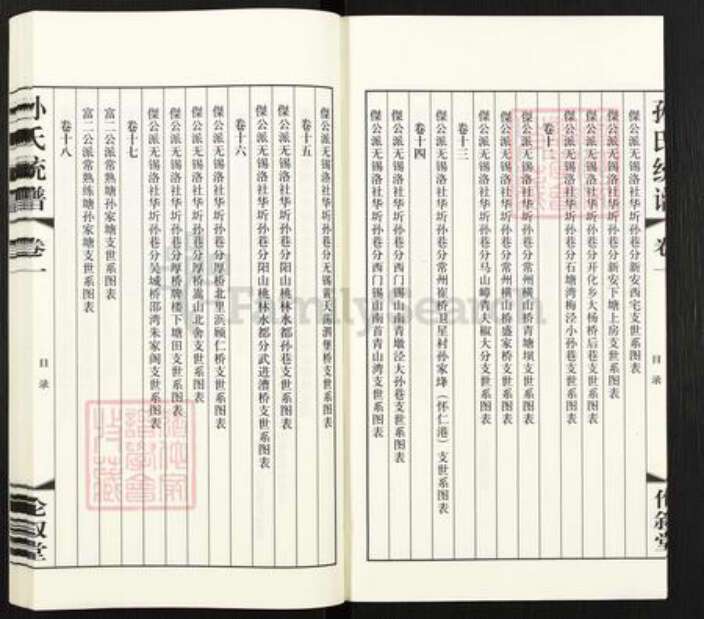 孙氏统谱 卷一
目录
傑公派无锡洛社华圻孙巷分新安西宅支世系图表
傑公派无锡洛社华圻孙巷分新安下塘上房支世系图表
傑公派无锡洛社华圻孙巷分开化乡大杨桥后巷支世系图表
傑公派无锡洛社华圻孙巷分石塘湾梅泾小孙巷支世系图表
卷十
傑公派无锡洛社华圻孙巷分常州横山桥青塘坝支世系图表
傑公派无锡洛社华圻孙巷分常州横山桥盛家桥支世系图表
傑公派无锡洛社华圻孙巷分马山嶂青夫椒大分支世系图表
卷十三
傑公派无锡洛社华圻孙巷分常州崔桥卫星村孙家烽（怀仁港）支世系图表
卷十四
傑公派无锡洛社华圻孙巷分西门锡山南青墩泾大孙巷支世系图表
傑公派无锡洛社华圻孙巷分西门锡山南首青山湾支世系图表
傑公派无锡洛社华圻孙巷分无锡黄天荡泗堡桥支世系图表
卷十五
傑公派无锡洛社华圻孙巷分阳山桃林水都孙巷支世系图表
傑公派无锡洛社华圻孙巷分阳山桃林水都分武进漕桥支世系图表
卷十六
傑公派无锡洛社华圻孙巷分厚桥北里浜顾仁桥支世系图表
傑公派无锡洛社华圻孙巷分厚桥嵩山北舍支世系图表
傑公派无锡洛社华圻孙巷分厚桥牌楼下塘田支世系图表
傑公派无锡洛社华圻孙巷分吴城桥邵湾朱家阁支世系图表
卷十七
富二公派常熟练塘孙家塘支世系图表
富二公派常熟塘孙家塘支世系图表
卷十八
孙氏统谱 卷一
目录
伦叙堂
FamilySearch